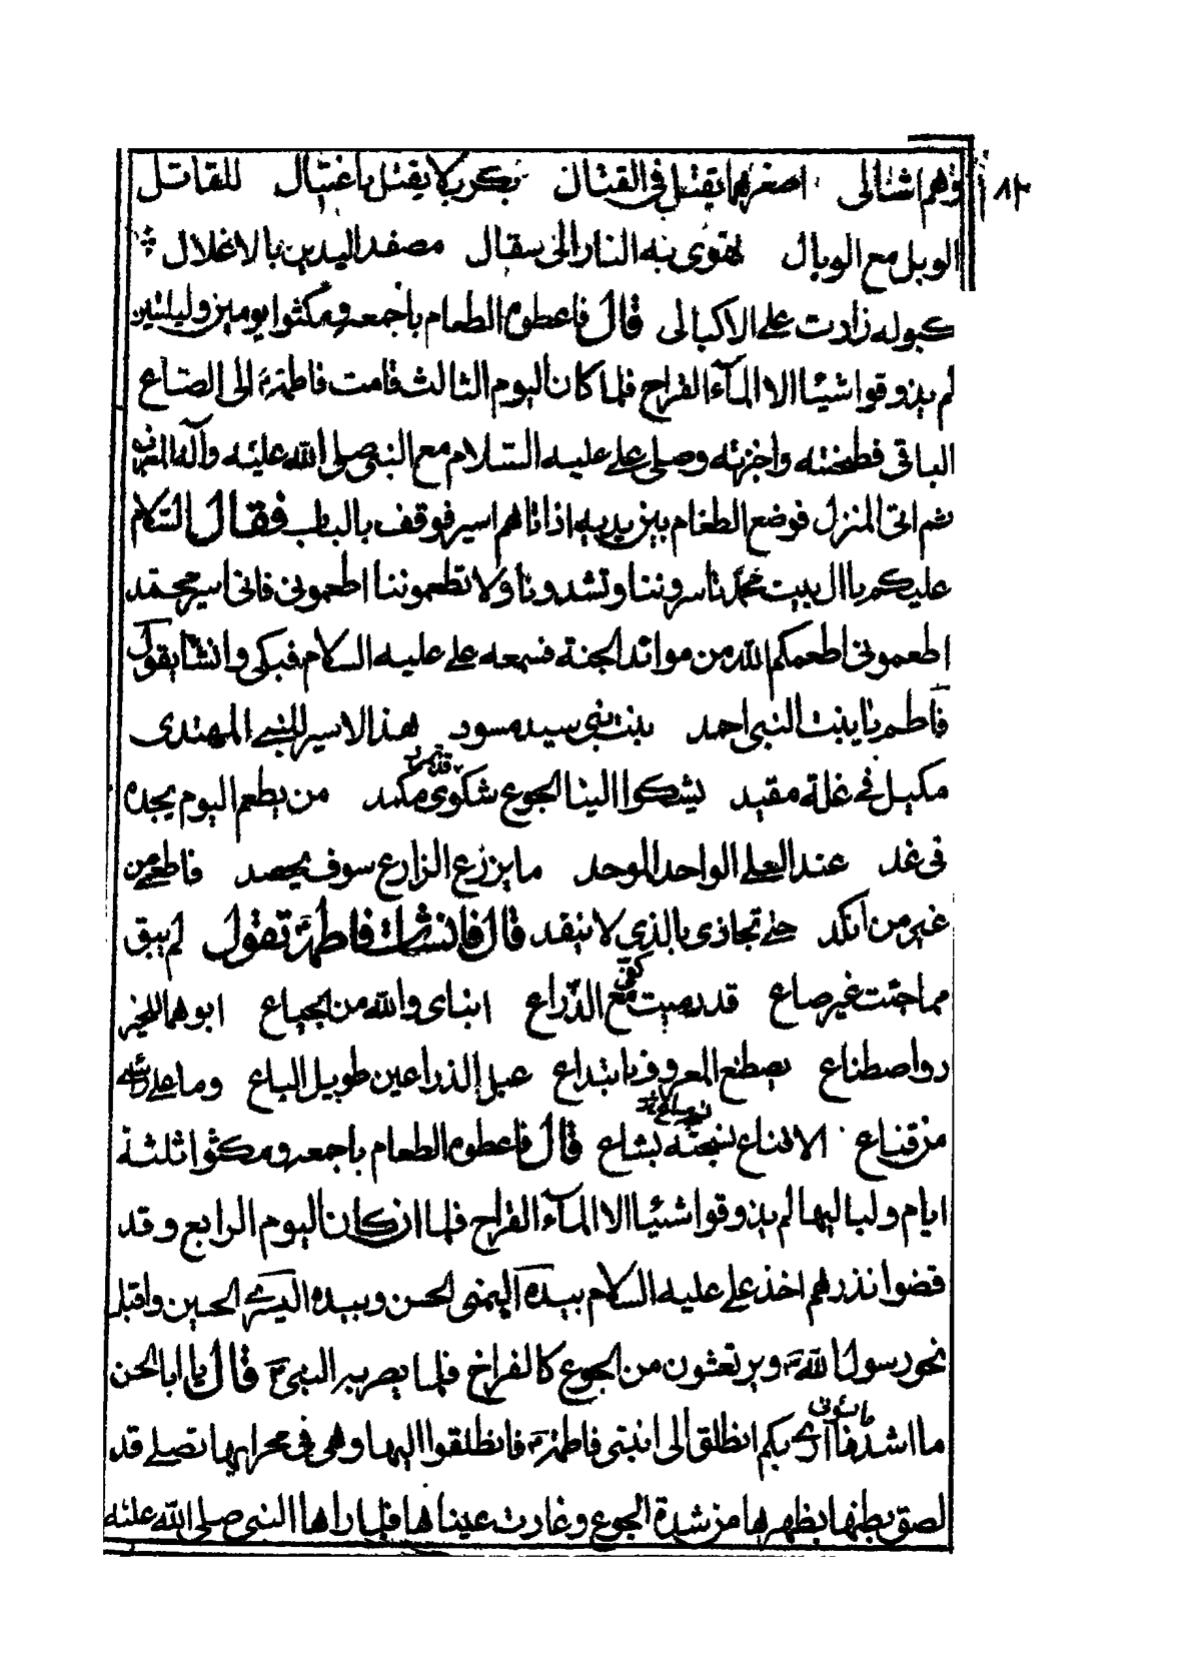 وهم اشبالى اصغرهما يقتل فى القتال بكربلا يقتل باغتيال للقاتل
الويل مع الوبال يهوى به النار الى سفال مصفد اليدين بالاغلال
كبوله زادت على الاكبالى قال فاعطوه الطعام باجمعه ومكثوا يومين وليلتين
لم يذوقوا شيئا الا المآء القراح فلما كان اليوم الثالث قامت فاطمة الى الصاع
الباقى فطحنته واختبزته وصلى على عليه السلام مع النبى صلى الله عليه وآله المغرب
ثم اتى المنزل فوضع الطعام بين يديه اذ اتاهم اسير فوقف بالباب فقال السلام
عليكم يا ال بيت محمد تاسروننا وتشدونا ولا تطعموننا اطعمونى فانى اسير محمد
اطعمونى اطعمكم الله من موائد الجنة فسمعه على عليه السلام فبكى وانشا يقول
فاطم يا بنت النبى احمد بنت نبى سيد مسود هذا الاسير للنبى المهتدى
مكبل فى غله مقيد يشكوا الينا الجوع شكوى مكمد من يطعم اليوم يجده
فى غد عند العلى الواحد الموحد ما يزرع الزارع سوف يحصد فاطعمى من
غير من انكد حتى تجازى بالذى لا ينفد قال فانشات فاطمة تقول لم يبق
مما جئت غير صاع قد دميت كفى مع الذراع ابناى والله من الجياع ابوهما للخير
ذو اصطناع يصطنع المعروف بابتداع عبل الذراعين طويل الباع وما على راسى
من قناع الا قناع نسجته بشاع قال فاعطوه الطعام باجمعه ومكثوا ثلثة
ايام ولياليها لم يذوقوا شيئا الا المآء القراح فلما ان كان اليوم الرابع وقد
قضوا نذرهم اخذ على عليه السلام بيده اليمنى الحسن وبيده اليسرى الحسين واقبل
نحو رسول الله وهم يرتعشون من الجوع كالفراخ فلما بصر بهم النبى قال يا ابا الحسن
ما اشد ما يسؤنى ما ارى بكم انطلق الى ابنتى فاطمة فانطلقوا اليها وهى فى محرابها تصلى قد
لصق بطنها بظهرها من شدة الجوع وغارت عيناها فلما راها النبى صلى الله عليه